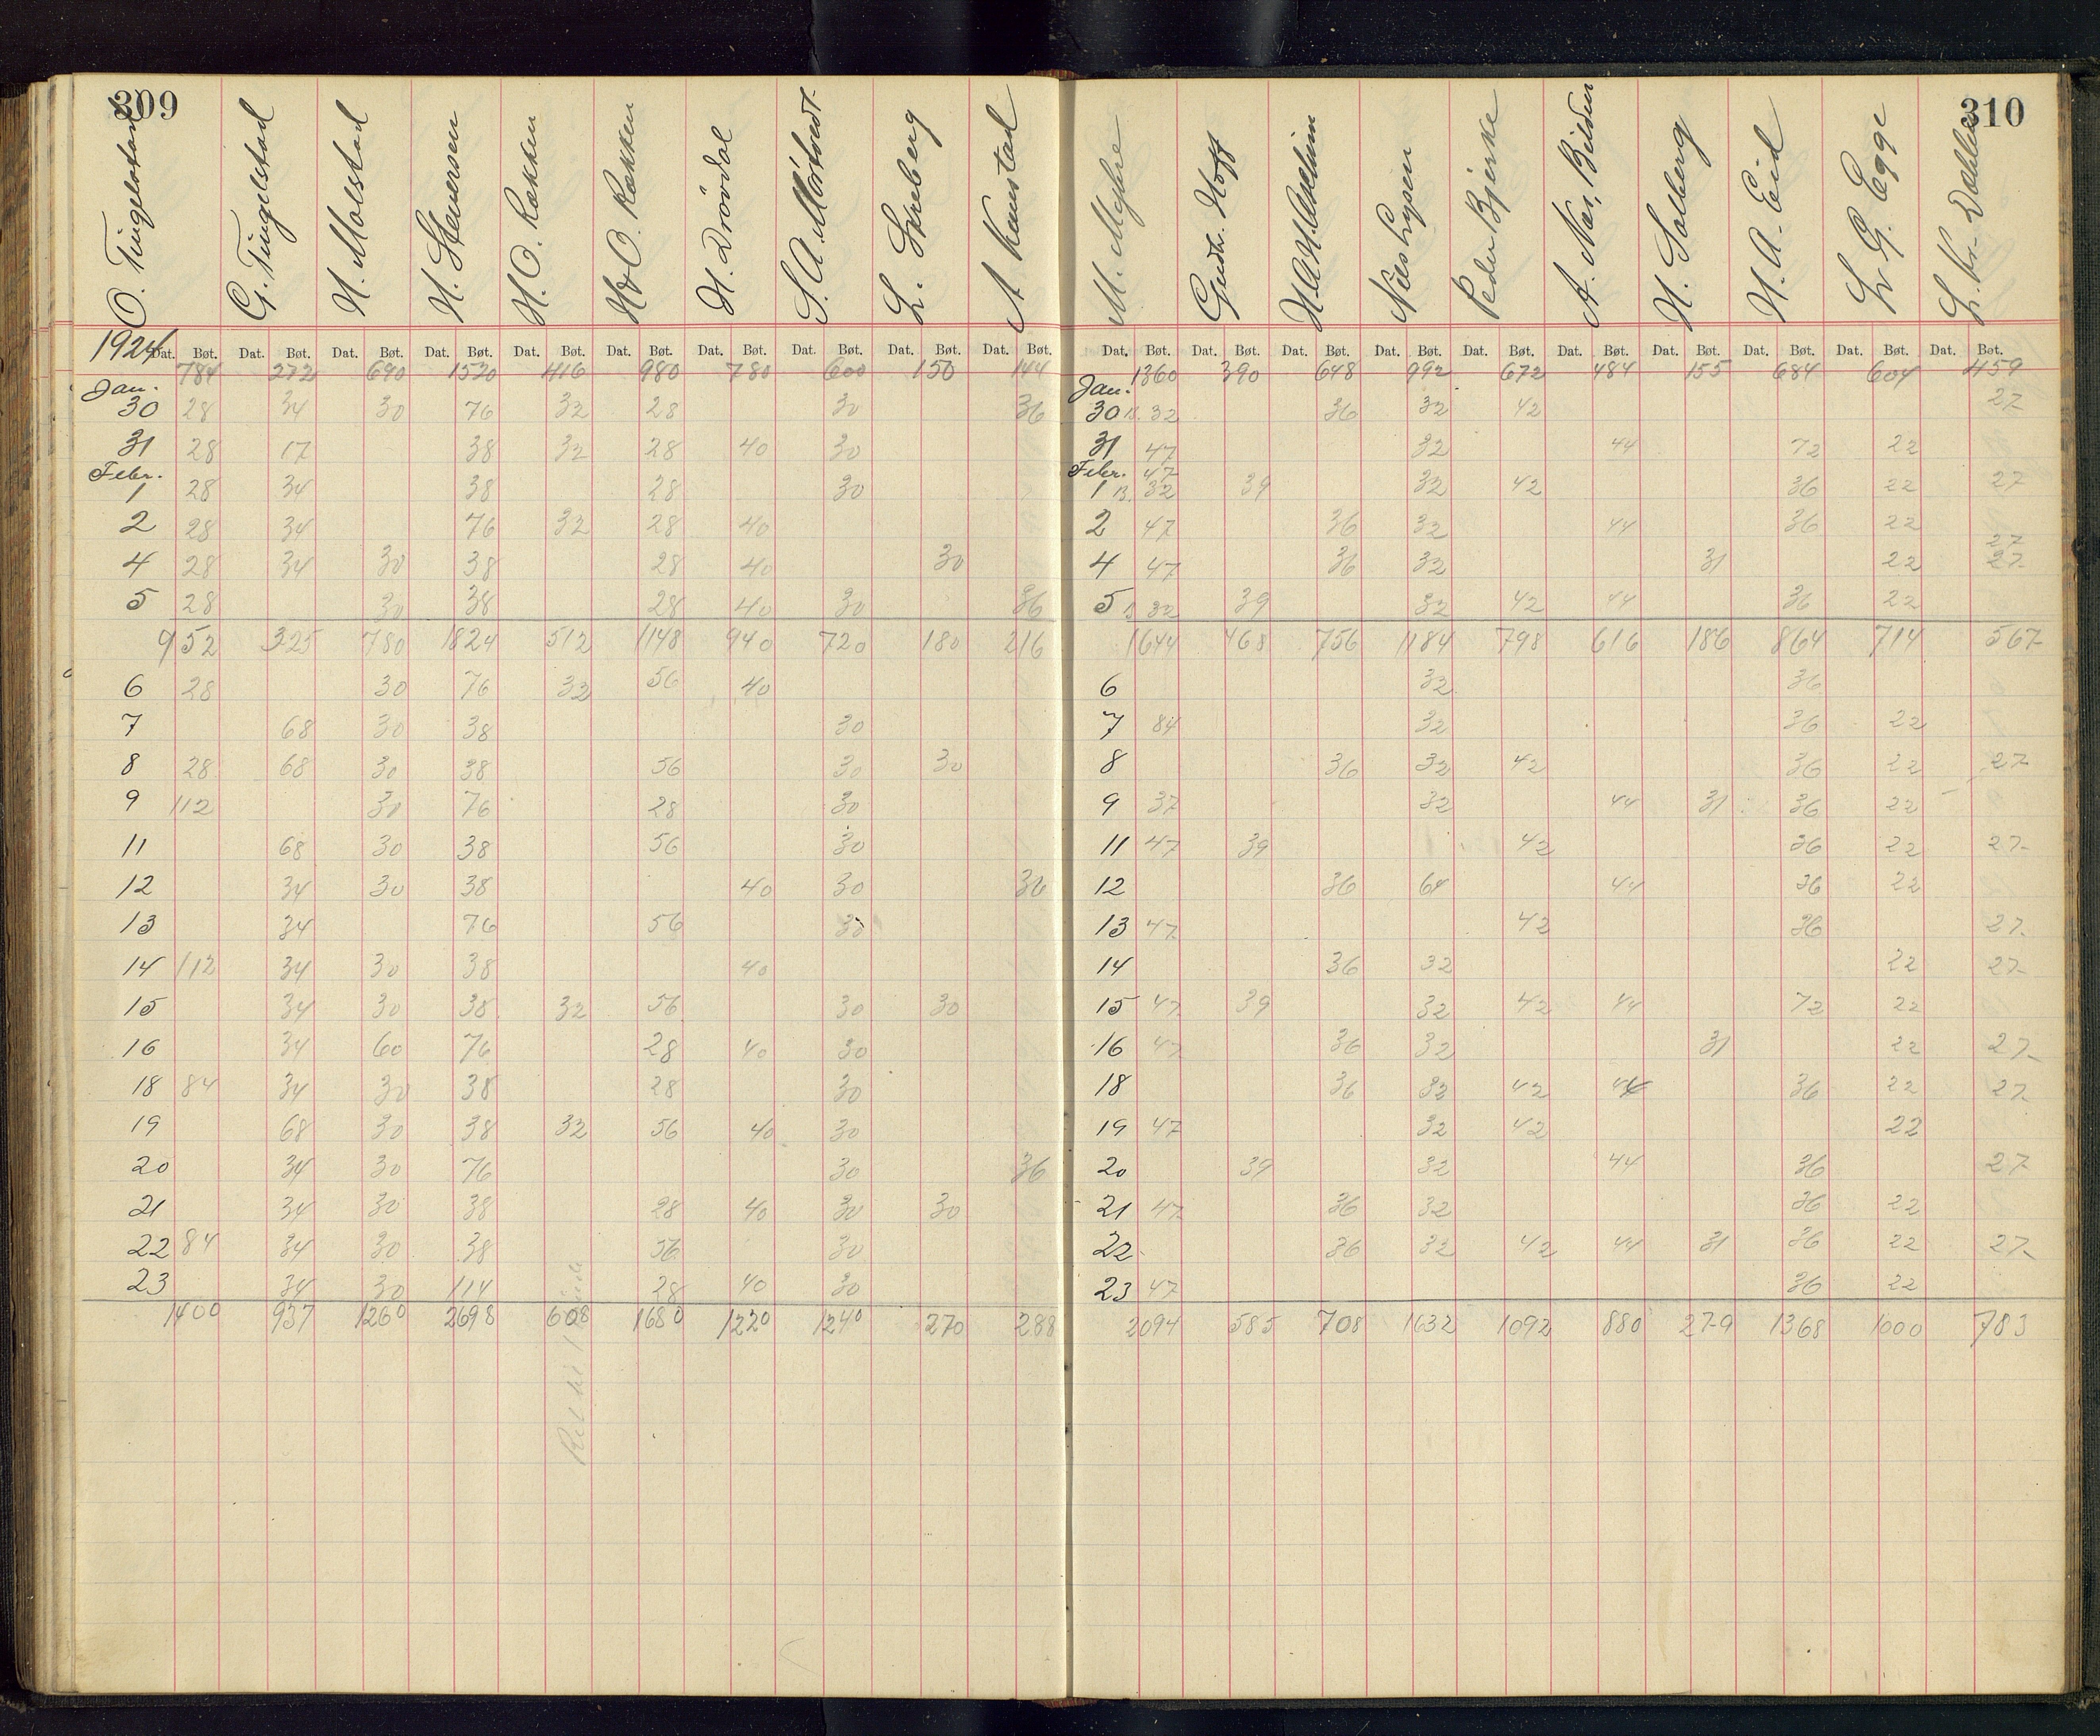 309
O. Tingelstad G. Tingelstad H. Molstad H. Stenersen H. O. Røkken O. Røkken H. Drövdal S. A. L. Skreberg A
1924 Dat. Bøt. Dat. Bøt. Dat. Bøt. Dat. Bøt. Dat. Bøt. Dat. Bøt. Dat. Bøt. Dat. Bøt. Dat. Bøt. Dat. Bøt.
784 272 690 1520 416 980 780 600 150 144
Jan.
30 28 34 30 76 32 28 30 36
31 28 17 38 32 28 40 30
Febr.
1 28 34 38 28 30
2 28 34 76 32 28 40
4 28 34 30 38 28 40 30
5 28 30 38 28 40 30 36
952 325 780 1824 512 1148 940 720 180 216
6 28 30 76 32 56 40
7 68 30 38 30
8 28 68 30 38 56 30 30
9 112 30 76 28 30
11 68 30 38 56 30
12 34 30 38 40 30 36
13 34 76 56 30
14 112 34 30 38 40
15 34 30 38 32 56 30 30
16 34 60 76 28 40 30
18 84 34 30 38 28 30
19 68 30 38 32 56 40 30
20 34 30 76 30 36
21 34 30 38 28 40 30 30
22 84 34 30 38 56 30
23 34 30 114 28 40 30
1400 937 1260 2698 608 1680 1220 1240 270 288
310
M. Myhre Gudbr. Hoff Nils Lysen Peder Bjerke A. Næs, Bilden H. Solberg H. A. Eid L. G. Egge L. Kr. Dæhlen
Dat. Bøt. Dat. Bøt. Dat. Bøt. Dat. Bøt. Dat. Bøt. Dat. Bøt. Dat. Bøt. Dat. Bøt. Dat. Bøt. Dat. Bøt.
1360 390 648 992 672 484 155 684 604 459
Jan.
30 B. 32 36 32 42 27
31 47 32 44 72 22
Febr. 47
1 B. 32 39 32 42 36 22 27
2 47 36 32 44 36 22
27
4 47 36 32 31 22 27
5 B 32 39 32 42 44 36 22
1644 468 756 1184 798 616 186 864 714 567
6 32 36
7 84 32 36 22
8 36 32 42 36 22 27
9 37 32 44 31 36 22
11 47 39 42 36 22 27
12 36 64 44 36 22
13 47 42 36 27
14 36 32 22 27
15 47 39 32 42 44 72 22
16 47 36 32 31 22 27
18 36 32 42 44 36 22 27
19 47 32 42 22
20 39 32 44 36 27
21 47 36 32 36 22
22 36 32 42 44 31 36 22 27
23 47 36 22
2094 585 708 1632 1092 880 279 1368 1000 783